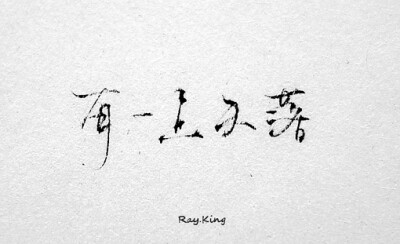 有一上不落
Ray.King